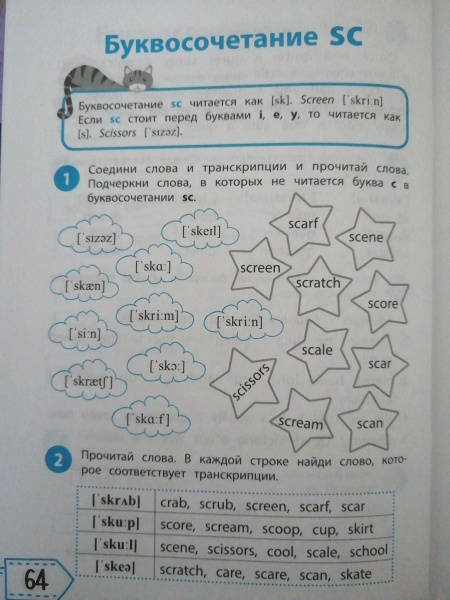 Буквосочетание sc
Буквосочетание sc читается как [sk]. Screen [ˈskri:n]
Если sc стоит перед буквами i, e, y, то читается как
[s]. Scissors [ˈsɪzəz].
1 Соедини слова и транскрипции и прочитай слова.
Подчеркни слова, в которых не читается буква с в
буквосочетании sc.
[ˈsɪzəz]
[ˈskeɪl]
scarf
scene
[ˈskɑ:]
screen
[ˈskæn]
scratch
score
[ˈskri:m]
[ˈskri:n]
[ˈsi:n]
scale
scar
[ˈskɔ:]
scissors
[ˈskrætʃ]
[ˈskɑ:f]
scream
scan
2 Прочитай слова. В каждой строке найди слово, кото-
рое соответствует транскрипции.
[ˈskrʌb] crab, scrub, screen, scarf, scar
[ˈsku:p] score, scream, scoop, cup, skirt
[ˈsku:l] scene, scissors, cool, scale, school
[ˈskeə] scratch, care, scare, scan, skate
64